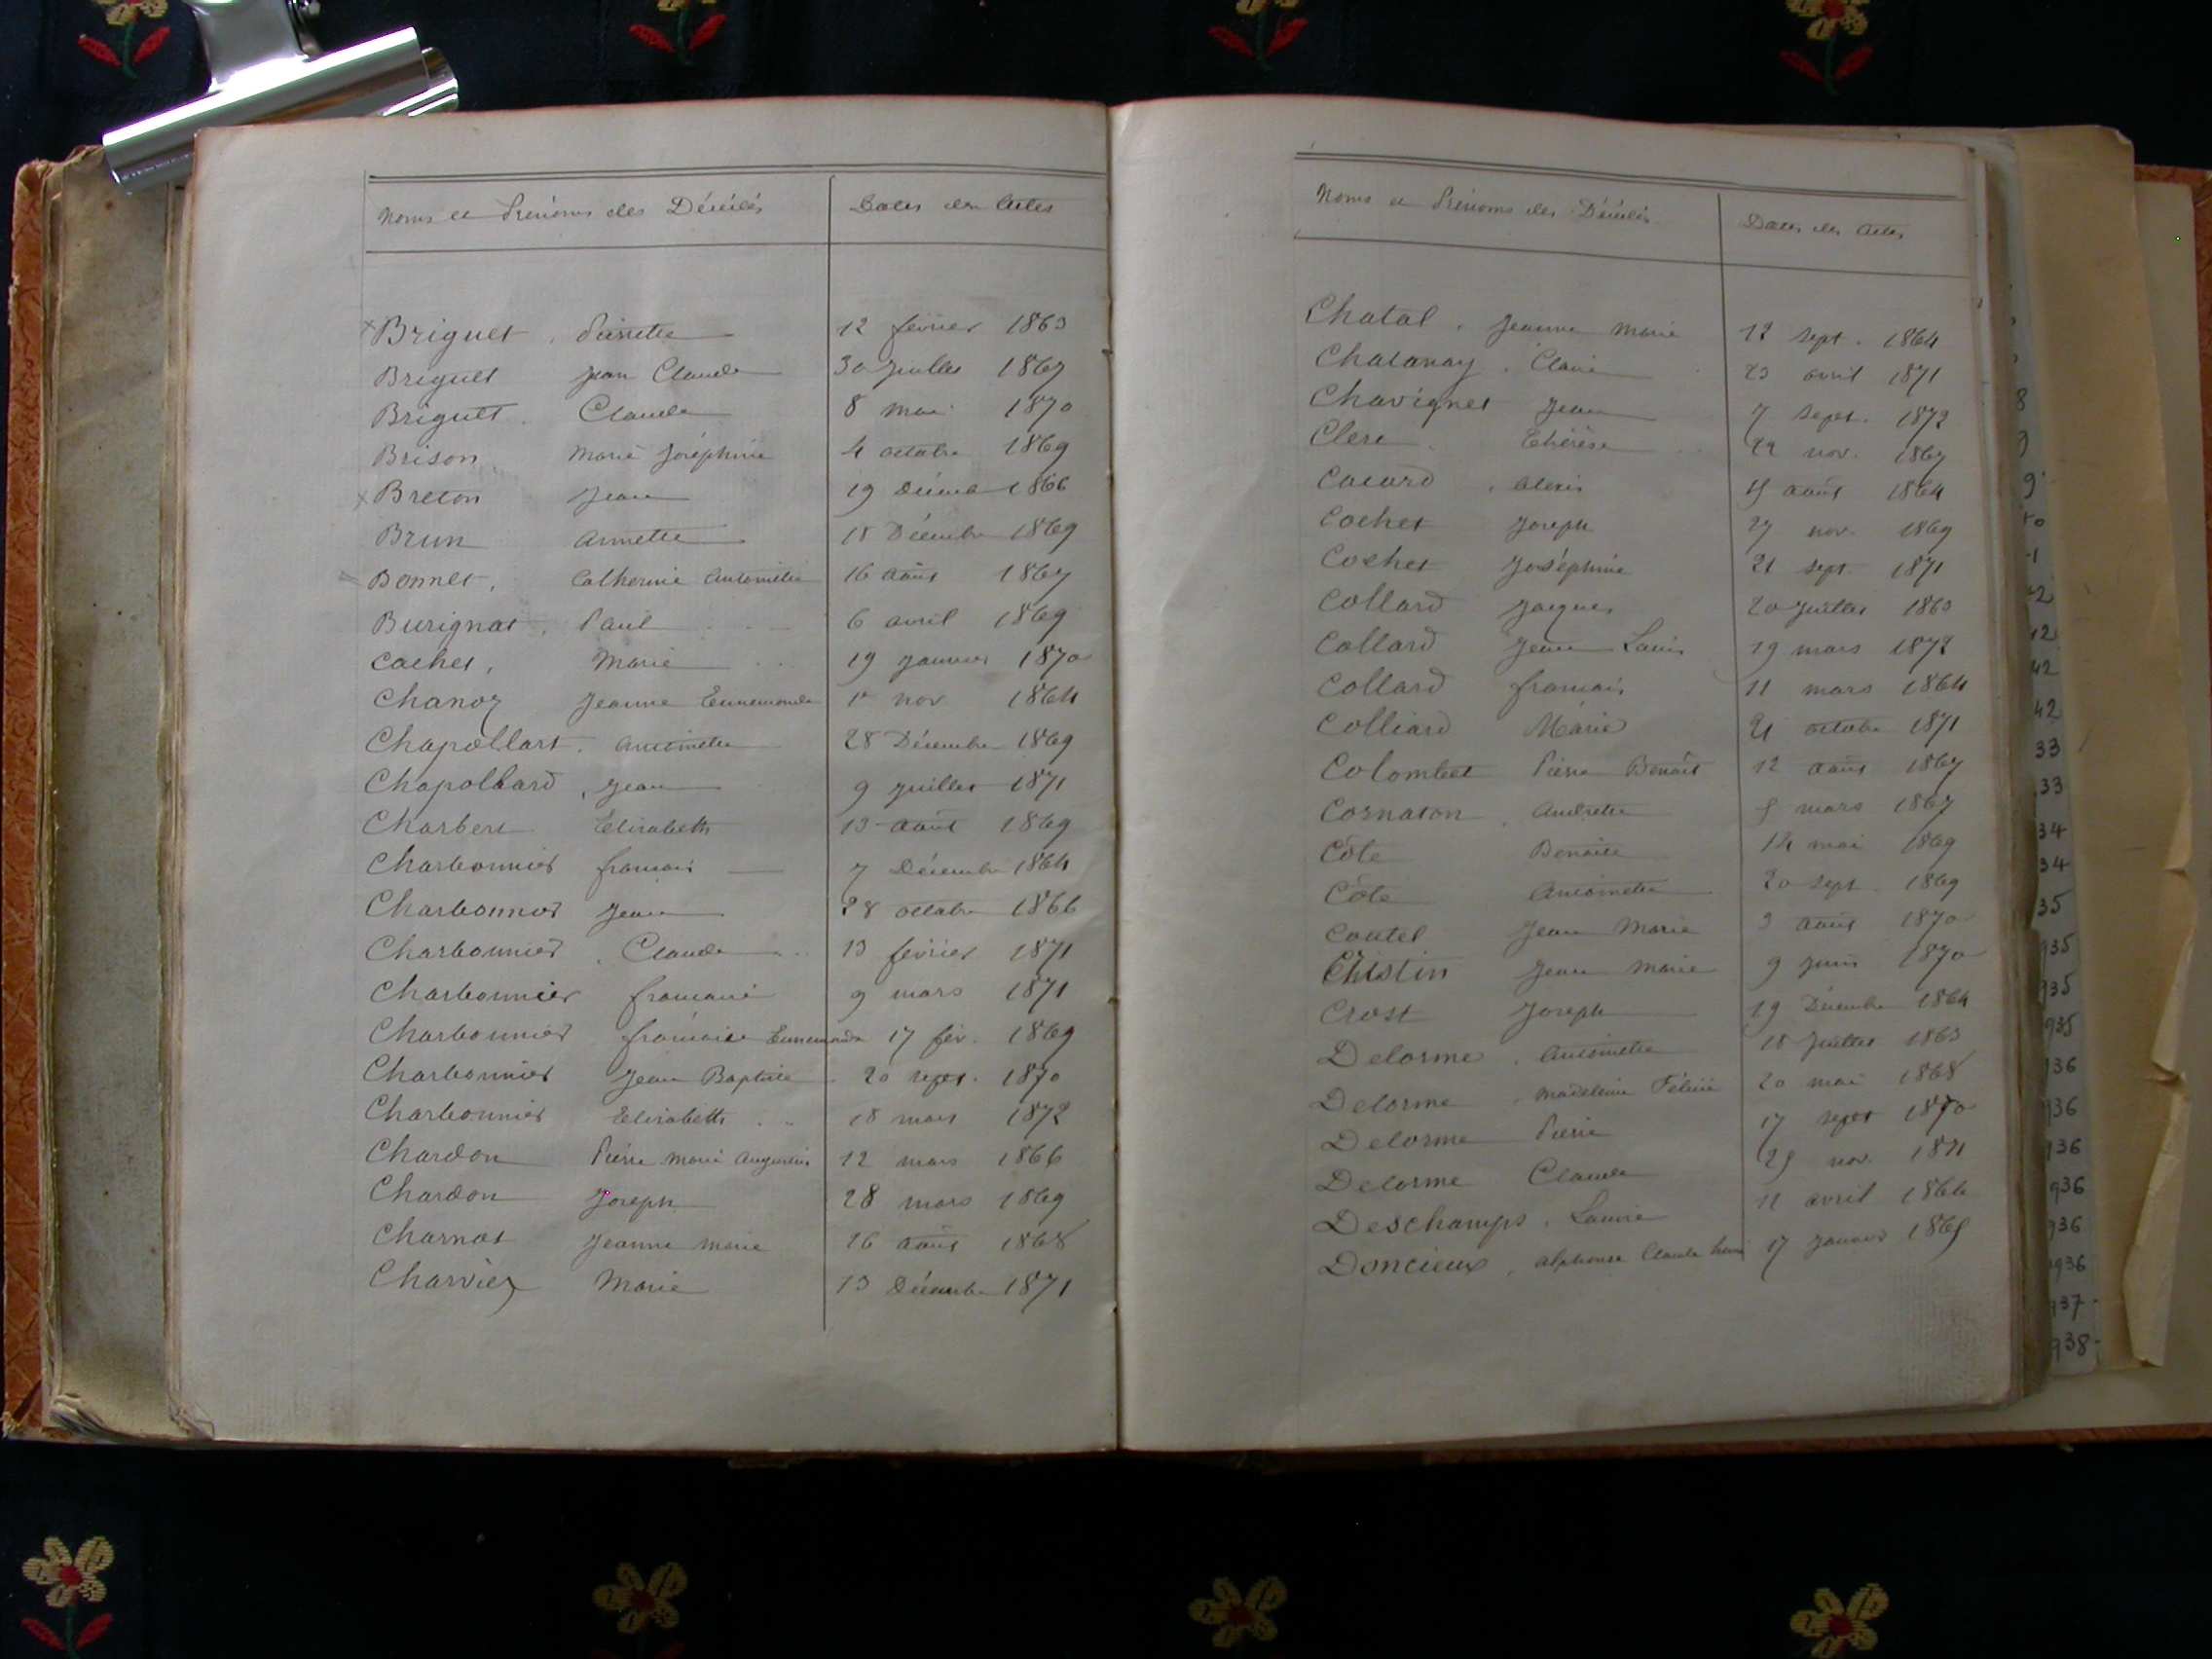 Noms et Prénoms des Décédés Dates des Actes
Briguet, Pierrette 12 février 1863
Briguet Jean Claude 30 juillet 1867
Briguet Claude 8 mai 1870
Brison Marie Joséphine 4 octobre 1869
Breton Jean 19 Décemb 1866
Brun Annette 18 Décembre 1869
Bonnet, Catherine Antoinette 16 août 1867
Burignat, Paul 6 avril 1869
Cachet, Marie 19 janvier 1870
Chanoz Jeanne Ennemonde 1er nov 1864
Chapollart, Antoinette 28 Décembre 1869
Chapollard, Jean 9 juillet 1871
Charbert Elisabeth 13 août 1869
Charbonnier françois 7 Décembre 1864
Charbonnier Jean 28 octobre 1866
Charbonnier, Claude 13 février 1871
Charbonnier 9 mars 1871
Charbonnier françoise Ennemonde 17 fév. 1869
Charbonnier Jean Baptiste 20 sept. 1870
Charbonnier Elisabeth 18 mars 1872
Chardon Pierre Marie Augustin 12 mars 1866
Chardon Joseph 28 mars 1869
Charnat Jeanne Marie 16 août 1868
Charviez Marie 13 Décembre 1871
Noms et Prénoms des Décédés Dates des Actes
Chatal, Jeanne Marie 12 sept. 1864
Chatanay, Claire 23 avril 1871
Chavignet Jean 7 sept. 1872
Clerc Thérèse 22 nov. 1867
Cocard, Alexis 15 août 1864
Cochet Joseph 27 nov. 1869
Cochet Joséphine 21 sept. 1871
Collard Jacques 20 juillet 1863
Collard Jean Louis 19 mars 1872
Collard françois 11 mars 1864
Colliard Marie 21 octobre 1871
Colombet Pierre Benoît 12 août 1867
Cornaton, Andrette 5 mars 1867
Côte Benoite 14 mai 1869
Côte Antoinette 20 sept. 1869
Coutel Jean Marie 3 août 1870
Christin Jean Marie 9 juin 1870
Crost Joseph 19 Décembre 1864
Delorme, Antoinette 18 juillet 1863
Delorme, Madeleine Félicie 20 mai 1868
Delorme Pierre 17 sept 1870
Delorme Claude 25 nov. 1871
Deschamps, Louise 11 avril 1866
Doncieux, Alphonse Claude henri 17 janvier 1865
8
9
42
42
42
42
33
33
34
34
35
935
935
935
936
936
936
936
936
936
937
938